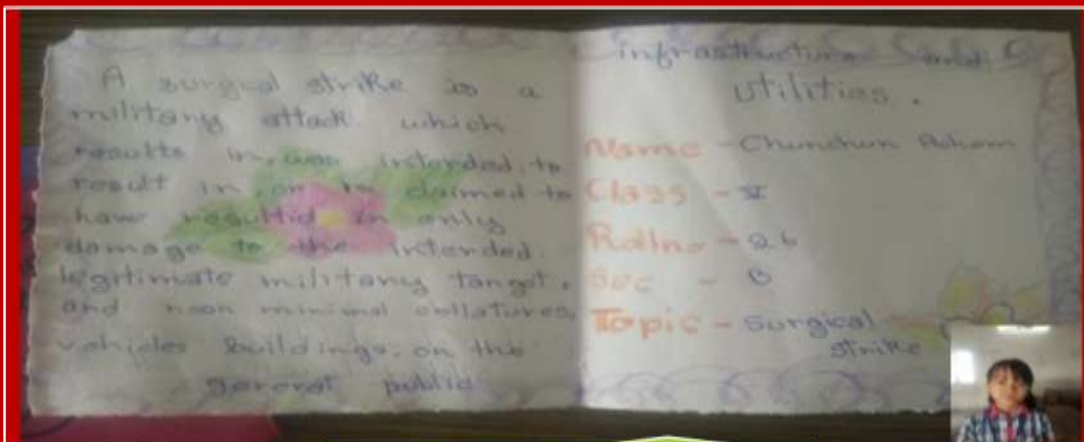 A surgical strike is a
military attack which
results in, was intended to
result in, or is claimed to
have resultid in only
damage to the intended
legitimate military target,
and noon minimal
vehicles buildings, on the
general public
infrastructure and
utilities.
Name - Chunchun
Class - V
Rollno - 26
Sec - B
Topic - Surgical
strike